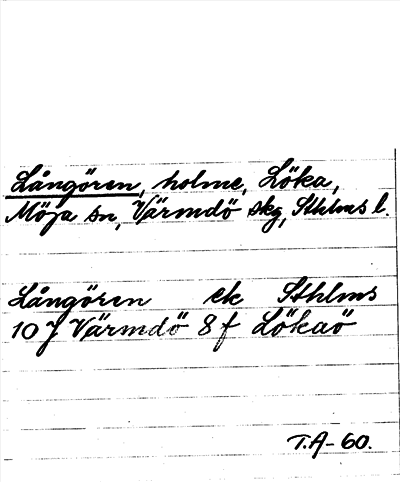 Långören, holme, Löka,
Möja sn, Värmdö skg, Sthlms l.
Långören ek Sthlms
10 J Värmdö 8 f Lökaö
T.A-60.